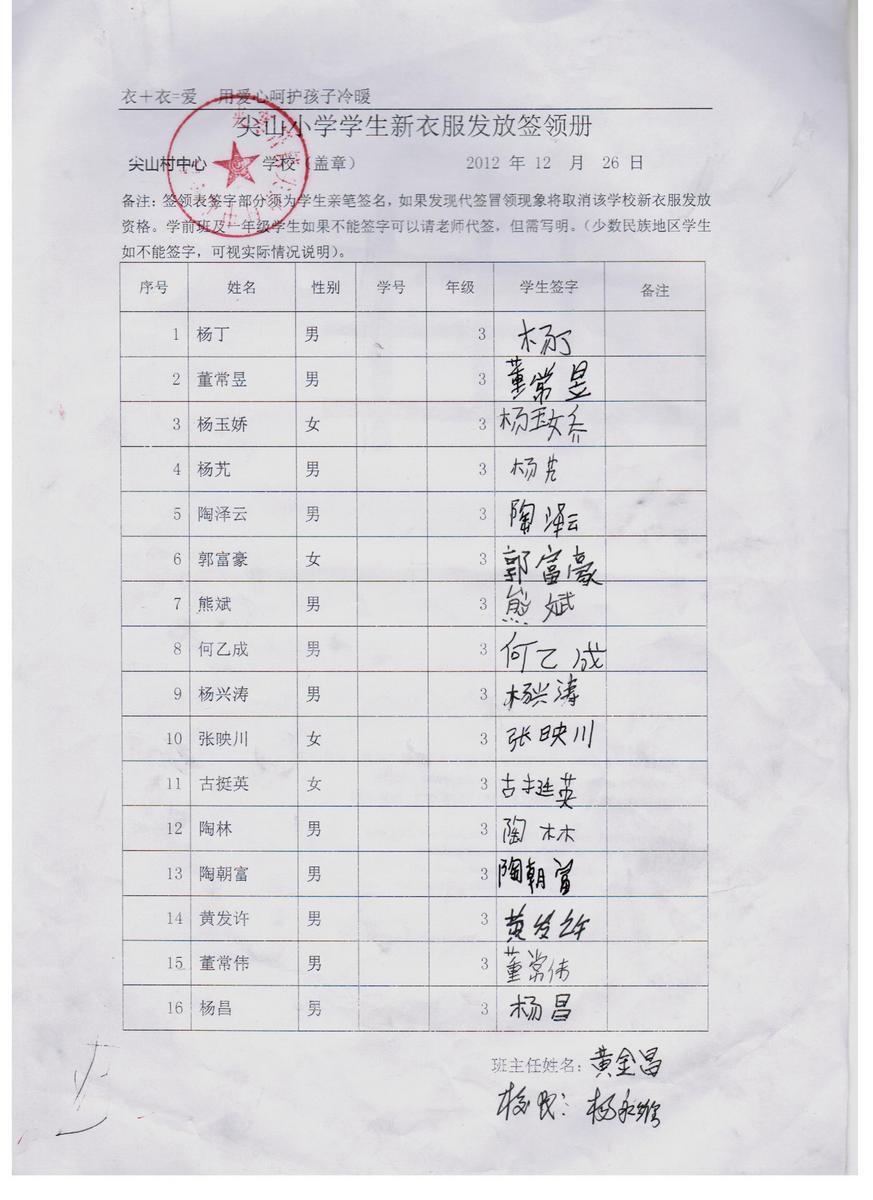 衣+衣=爱 用爱心呵护孩子冷暖
尖山小学学生新衣服发放签领册
尖山村中心 学校（盖章） 2012 年 12 月 26 日
备注：签领表签字部分须为学生亲笔签名，如果发现代签冒领现象将取消该学校新衣服发放
资格。学前班及一年级学生如果不能签字可以请老师代签，但需写明。（少数民族地区学生
如不能签字，可视实际情况说明）。
序号 姓名 性别 学号 年级 学生签字 备注
1 杨丁 男 3 杨丁
2 董常昱 男 3 董常昱
3 杨玉娇 女 3 杨玉娇
4 杨艽 男 3 杨艽
5 陶泽云 男 3 陶泽云
6 郭富豪 女 3 郭富豪
7 熊斌 男 3 熊斌
8 何乙成 男 3 何乙成
9 杨兴涛 男 3 杨兴涛
10 张映川 女 3 张映川
11 古挺英 女 3 古挺英
12 陶林 男 3 陶林
13 陶朝富 男 3 陶朝富
14 黄发许 男 3 黄发许
15 董常伟 男 3 董常伟
16 杨昌 男 3 杨昌
班主任姓名：黄金昌
校长：杨永维